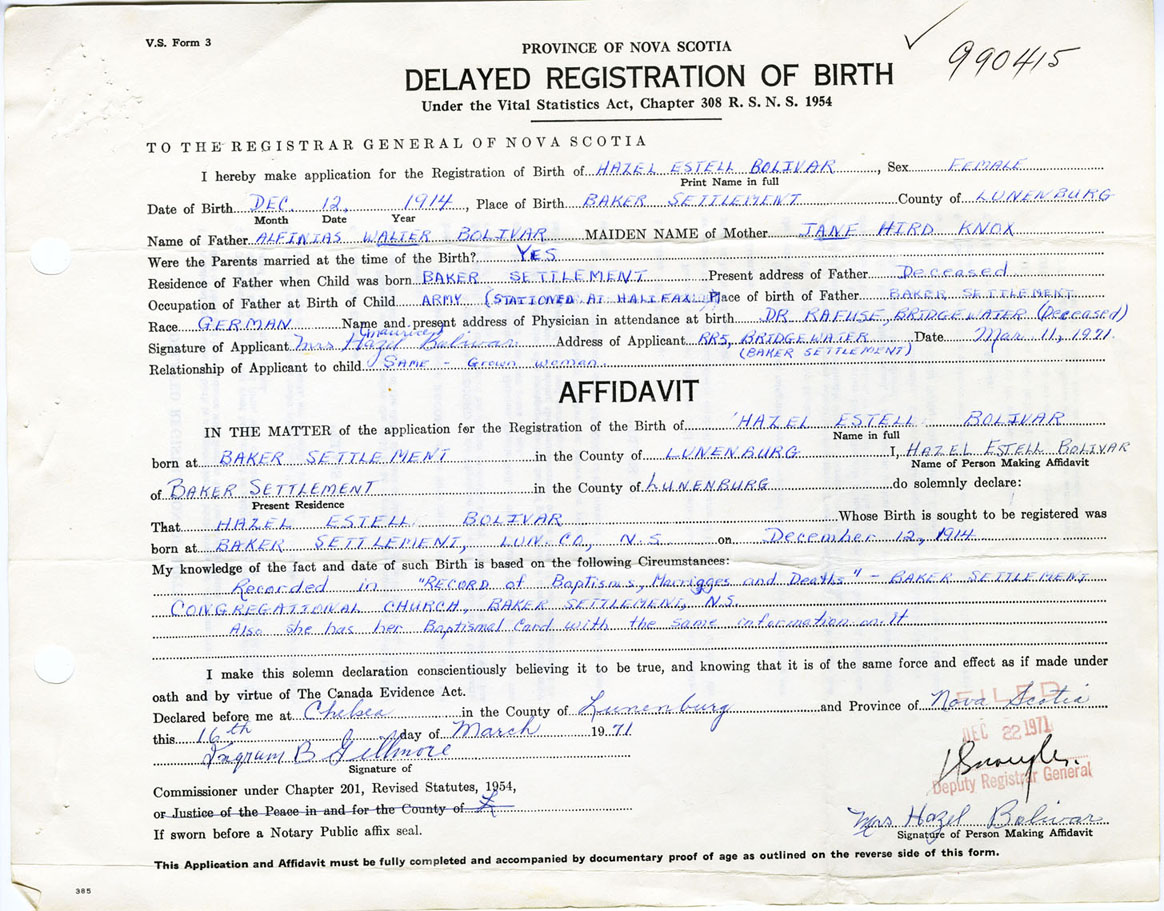 V.S. Form 3
990415
PROVINCE OF NOVA SCOTIA
DELAYED REGISTRATION OF BIRTH
Under the Vital Statistics Act, Chapter 308 R. S. N. S. 1954
TO THE REGISTRAR GENERAL OF NOVA SCOTIA
I hereby make application for the Registration of Birth of HAZEL ESTELL BOLIVAR, Sex FEMALE
Print Name in full
Date of Birth DEC. 12, 1914, Place of Birth BAKER SETTLEMENT County of LUNENBURG
Month Date Year
Name of Father ALFINIAS WALTER BOLIVAR MAIDEN NAME of Mother JANE HIRD KNOX
Were the Parents married at the time of the Birth? YES
Residence of Father when Child was born BAKER SETTLEMENT Present address of Father Deceased
Occupation of Father at Birth of Child ARMY (STATIONED AT HALIFAX) Place of birth of Father BAKER SETTLEMENT
Race GERMAN Name and present address of Physician in attendance at birth DR KAFUSE, BRIDGEWATER (Deceased)
Signature of Applicant Mrs Hazel (Maurice) Bolivar Address of Applicant RR5, BRIDGEWATER Date Mar. 11, 1971.
(BAKER SETTLEMENT)
Relationship of Applicant to child Same - Grown woman.
AFFIDAVIT
IN THE MATTER of the application for the Registration of the Birth of HAZEL ESTELL BOLIVAR
Name in full
born at BAKER SETTLEMENT in the County of LUNENBURG I, HAZEL ESTELL BOLIVAR
Name of Person Making Affidavit
of BAKER SETTLEMENT in the County of LUNENBURG do solemnly declare:
Present Residence
That HAZEL ESTELL BOLIVAR Whose Birth is sought to be registered was
born at BAKER SETTLEMENT, LUN. CO, N.S. on December 12, 1914
My knowledge of the fact and date of such Birth is based on the following Circumstances:
Recorded in "RECORD of Baptisms, Marrigges and Deaths" - BAKER SETTLEMENT
CONGREGATIONAL CHURCH, BAKER SETTLEMENT, N.S.
Also she has her Baptismal Card with the same information on it
I make this solemn declaration conscientiously believing it to be true, and knowing that it is of the same force and effect as if made under
oath and by virtue of The Canada Evidence Act.
Declared before me at Chelsea in the County of Lunenburg and Province of Nova Scotia
FILED
this 16th day of March 1971
DEC 22 1971
Ingram B Gillmore
Signature of
Deputy Registrar General
Commissioner under Chapter 201, Revised Statutes, 1954,
or Justice of the Peace in and for the County of
Mrs Hazel Bolivar
Signature of Person Making Affidavit
If sworn before a Notary Public affix seal.
This Application and Affidavit must be fully completed and accompanied by documentary proof of age as outlined on the reverse side of this form.
385